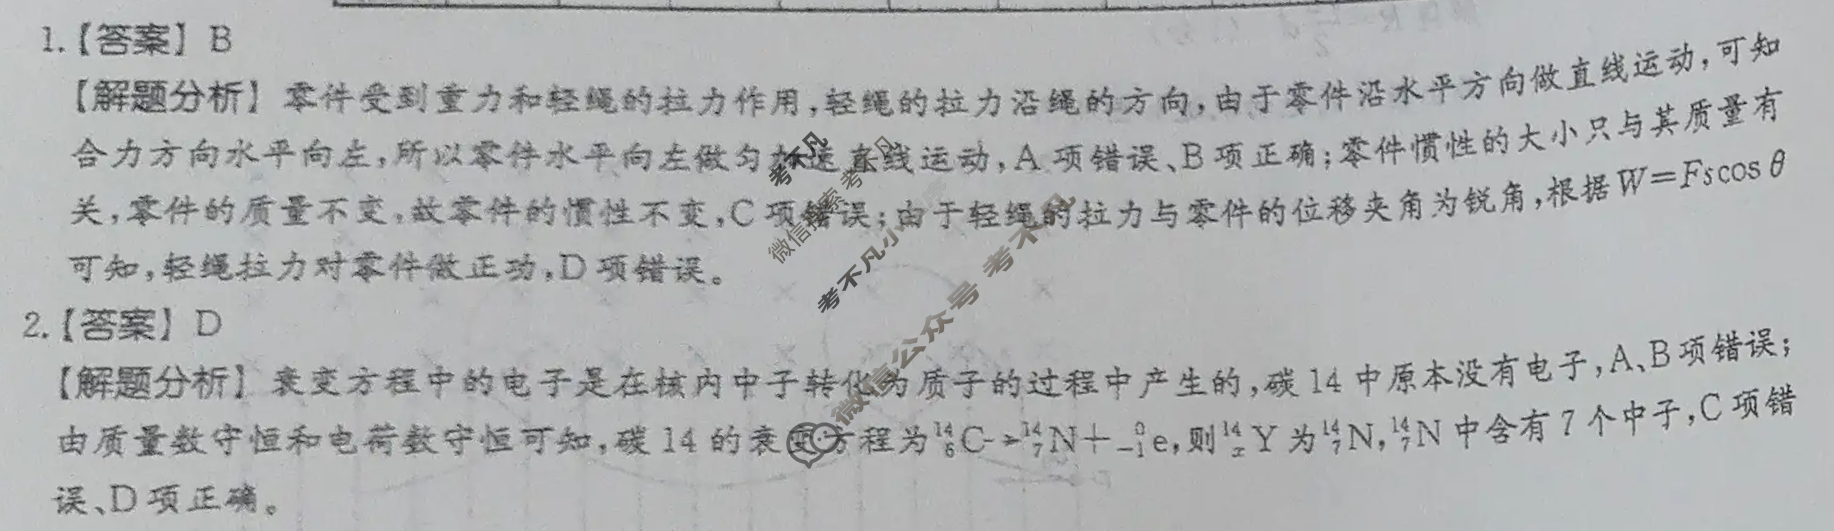 1.【答案】B
【解题分析】零件受到重力和轻绳的拉力作用,轻绳的拉力沿绳的方向,由于零件沿水平方向做直线运动,可知
合力方向水平向左,所以零件水平向左做匀加速直线运动,A项错误、B项正确;零件惯性的大小只与其质量有
关,零件的质量不变,故零件的惯性不变,C项错误;由于轻绳的拉力与零件的位移夹角为锐角,根据W=Fscosθ
可知,轻绳拉力对零件做正功,D项错误。
2.【答案】D
【解题分析】衰变方程中的电子是在核内中子转化为质子的过程中产生的,碳14中原本没有电子,A、B项错误;
由质量数守恒和电荷数守恒可知,碳14的衰变方程为¹⁴₆C→¹⁴₇N+⁰₋₁e,则¹⁴ₓY为¹⁴₇N,¹⁴₇N中含有7个中子,C项错
误、D项正确。
考不凡
微信搜索考不凡
考不凡小
微信公众号 考不凡